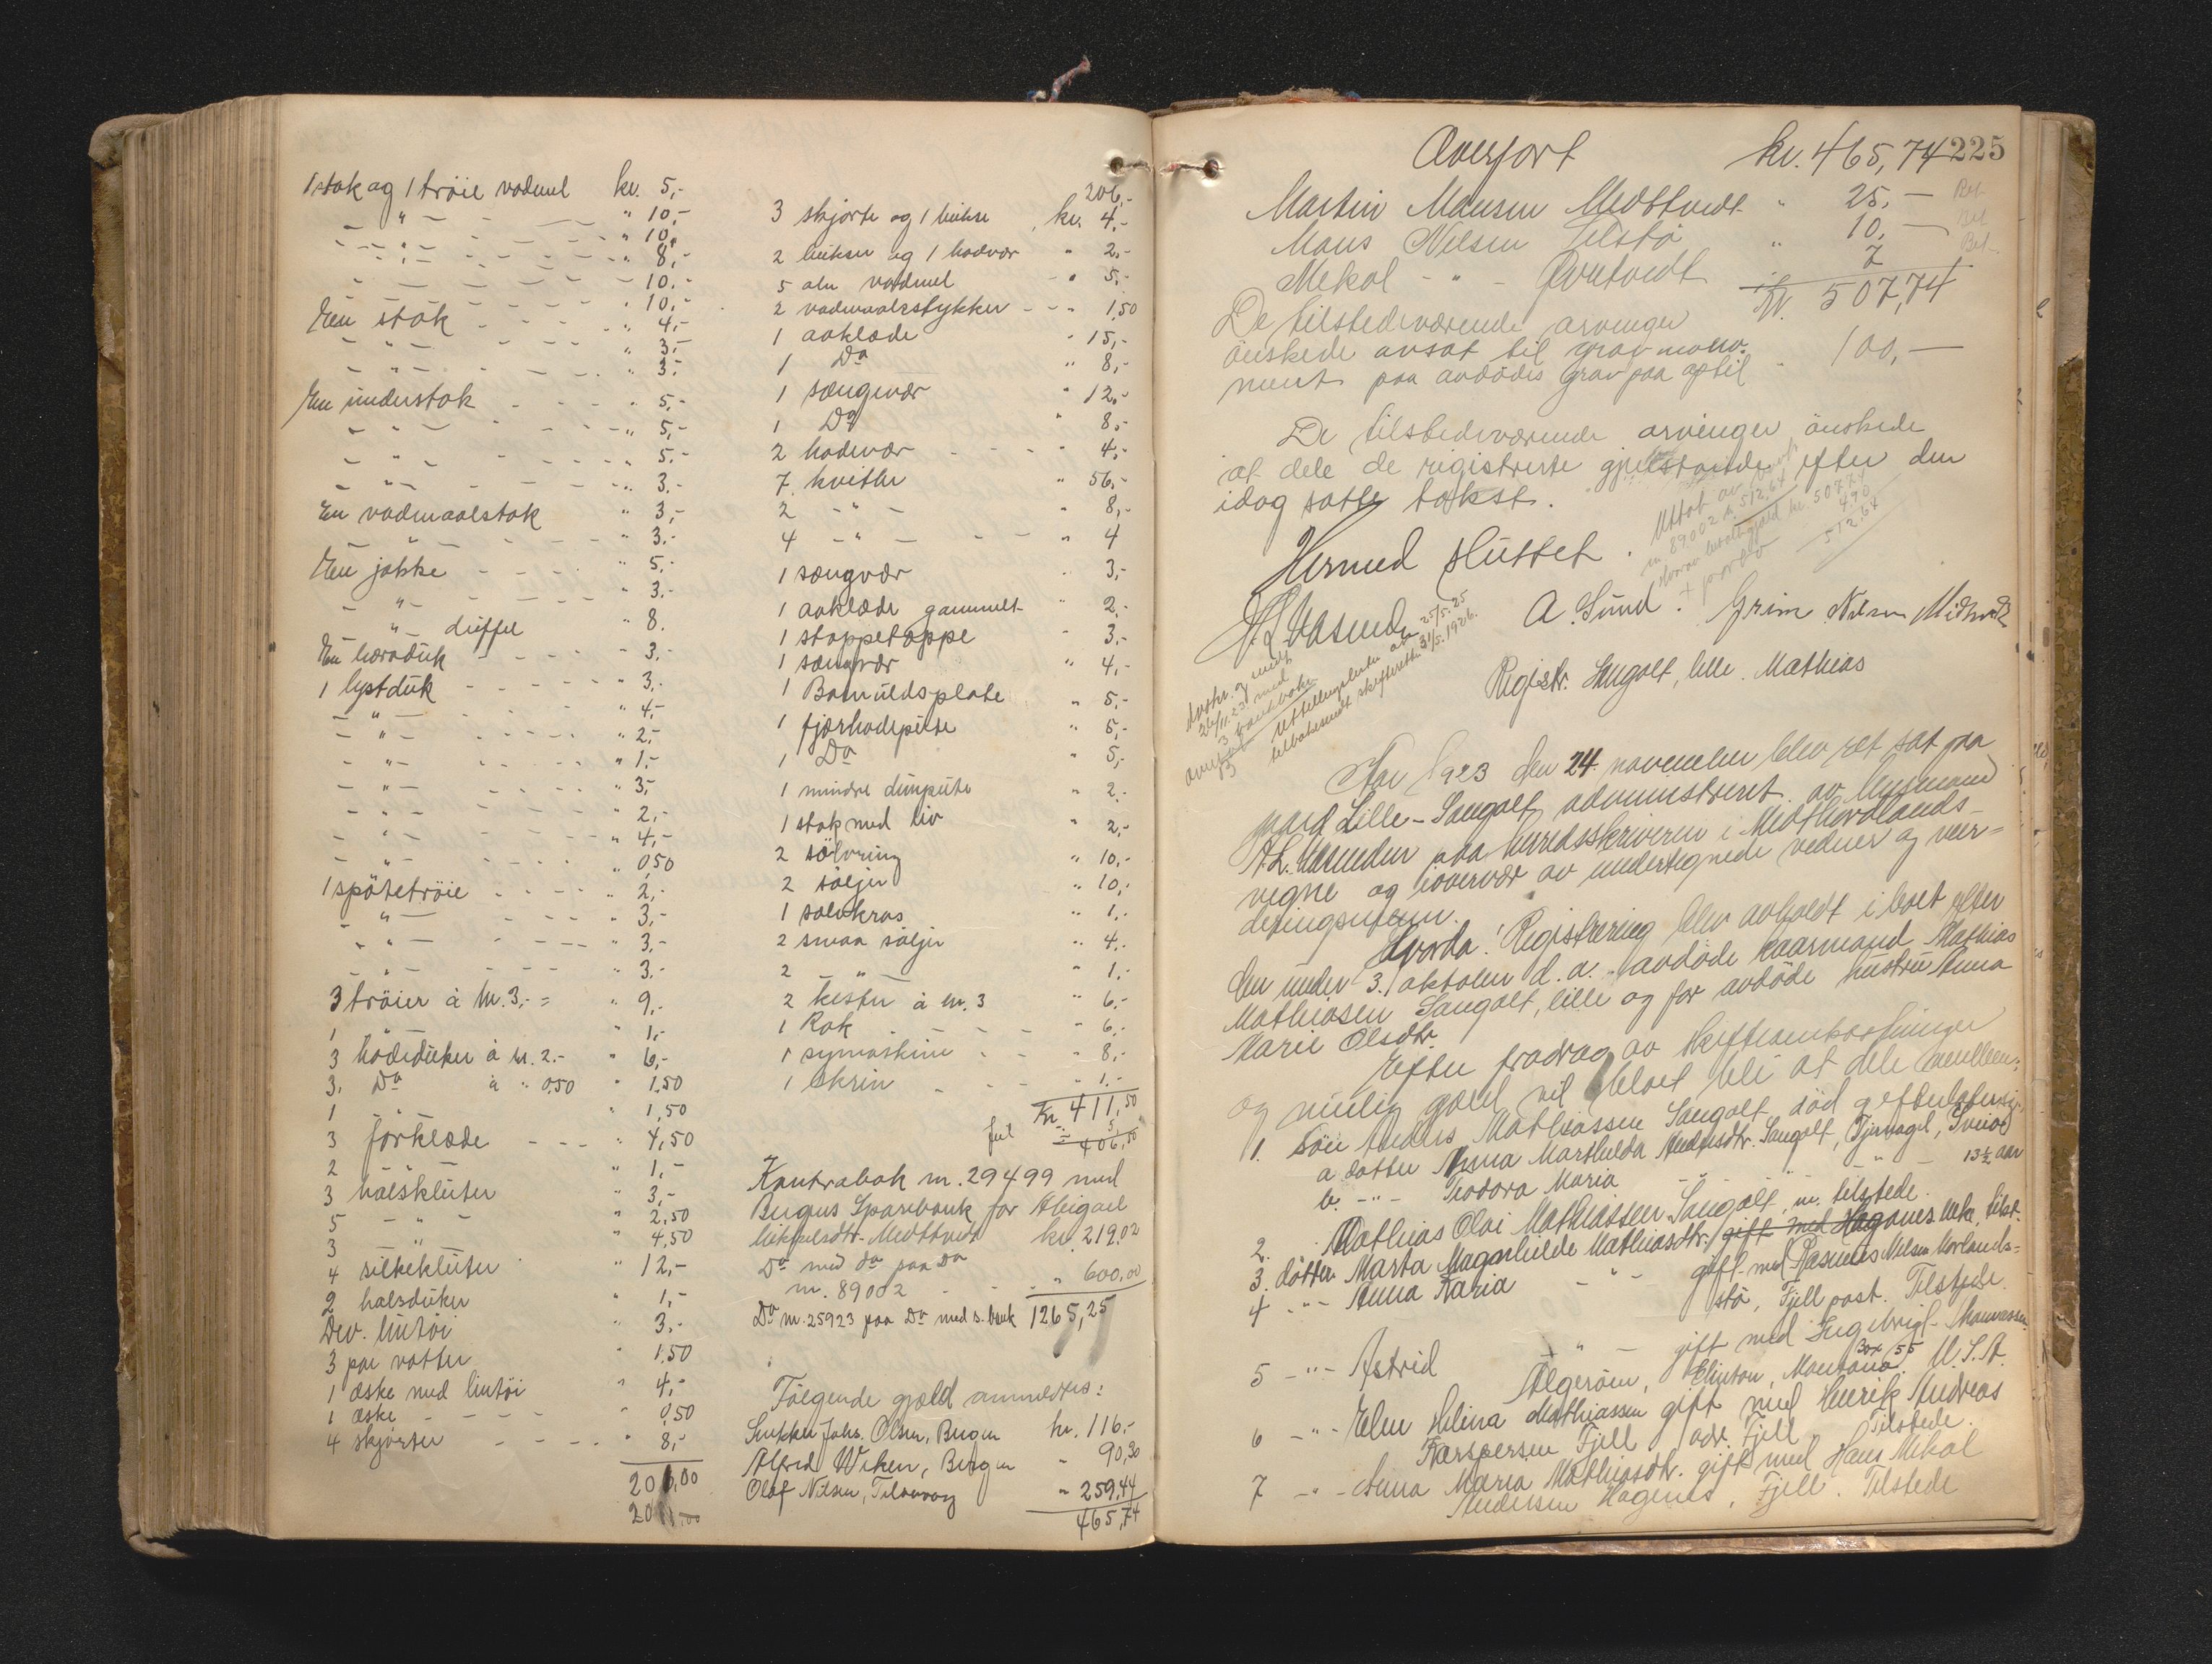 1 stak og 1 trøie vadmel kr. 5,-
- " - " 10,-
- " - " 10,-
- " - " 8,-
- " 10.-
- " 10,-
En stak " 4,-
- " - " 3,-
- " - " 3,-
En understak " 5,-
- " - " 5,-
- " - " 5.-
- " - " 3.-
En vadmaalstak " 3,-
- " - " 3.-
En jakke " 5,-
- " - " 3.-
- " - düffel " 8.
En " 3,-
1 lystduk " 3,-
- " - " 4,-
- " - " 2,-
- " - " 1,-
- " - " 3,-
- " - 2,-
- " - " 4,-
- " - " 0,50
1 spøtetrøie " 2,-
- " - " 3,-
- " - " 3,-
- " - " 3.-
3 trøier à kr. 3,- = " 9,-
1 " 1,-
3 hodeduker à kr. 2.- " 6,-
3. Do à " 0,50 " 1,50
1 " 1,50
3 forklæde " 4,50
2 " 1,-
3 halskluter " 3,-
5 - " - " 2,50
3 " " 4,50
4 silkekluter " 12,-
2 halsduker " 1,-
Div. lintøi " 3,-
3 par votter " 1,50
1 æske med lintøi " 4,-
1 æske " 0,50
4 skjorter " 8,-
206,00
206,-
3 skjorte og 1 bukse kr. 4.-
2 bukser og 1 hodvær " 2,-
5 aln vadmel " 5,-
2 vadmaalsstykker " 1,50
1 aaklæde " 15,-
1 Do " 8,-
1 sængevær " 12,-
1 Do " 8,-
2 hodevær " 4,-
7 kvitler " 56,-
2 - " - " 8,-
4 - " - " 4
1 sængvær " 3,-
1 aaklæde gammelt " 2.-
1 stoppetæppe " 3.-
1 sængvær " 4,-
1 Bomuldsplate " 5,-
1 fjærhodepute " 5,-
1 Do " 5,-
1 mindre dunpute " 2.-
1 stak med liv " 2,-
2 sølvring " 10,-
2 søljer " 10,-
1 sølvkros " 1,-
2 smaa søljer " 4,-
2 - " - " 1,-
2 kister à kr. 3 " 6,-
1 Rok " 6,-
1 symaskine " 8,-
1 skrin " 1.-
Kr. 411,50
feil 5
= 406,50
Kontrabok nr. 29499 med
Bergens Sparebank for Abigael
Mikkelsdtr. Midttveit kr. 219,02
Do med do paa Do
nr. 89002 " 600,00
Do nr. 25923 paa Do med s. bank 1265,25
Følgende gjæld anmeldtes:
Snekker Johs. Olsen, Bergen kr. 116,-
Alfred Wiken, Bergen " 90,30
Olaf Nilsen, Telavaag " 259,44
465,74
Overført kr. 465,74 225
Martin Monsen Midttveit " 25,- Bet
Mons Nilsen Tilstø " 10,- Bet
Mikal - " - Øvretveit 7 Bet
Kr. 507,74
De tilstedeværende arvinger
ønskede avsat til gravmonu-
ment paa avdødes grav paa optil " 100,-
De tilstedeværende arvinger ønskede
at dele de registrerte gjenstande efter den
idag satte takst.
Uttat av
nr. 89002 kr. 512,64
kr. 507,74
4,90
512,64
Hermed sluttet.
A. Sund. Grim Nilsen Midtveit
Utstr. og
24/11.23 med
3 bankbøker
25/5.25
skifteretten 31/5.1926.
Registr. Sangolt, lille. Mathias
Aar 1923 den 24. november blev ret sat paa
gaard Lille-Sangolt administreret av lensmand
paa herredsskriveren i Midthordlands
vegne og i overvær av undertegnede vidner og vur-
deringsmenn.
Hvorda: Registrering blev avholdt i boet efter
den under 3. oktober d. a. avdøde kaarmand Mathias
Mathiasen Sangolt, lille og før avdøde hustru Anna
Marie Olsdtr.
Efter fradrag av skifteomkostninger
og mulig gjæld vil boet bli at dele mellem:
1. Søn Anders Mathiassen Sangolt død
a datter Anna Marthilda Andersdtr. Sangolt, Tjernagel, Sveio
b. - " - Teodora Maria - " - 13½ aar
2. Mathias Olai Mathiassen Sangolt, m. tilstede.
3. datter Marta Magnhilde Mathiasdtr. gift med Hagenes
4 - " - Anna Karia - " - gift med Rasmus Nilsen Morlands-
stø, Fjell post. Tilstede.
5 - " - Astrid - " - gift med Ingebrigt
Algerøen, Box 55 Clinton, Montana. U. S. A.
6 - " - Elen Helina Mathiassen gift med Henrik Andreas
Kaspersen Fjell adr. Fjell. Tilstede.
7 - " - Anna Maria Mathiasdtr. gift med Hans Mikal
Andersen Hagenes, Fjell. Tilstede